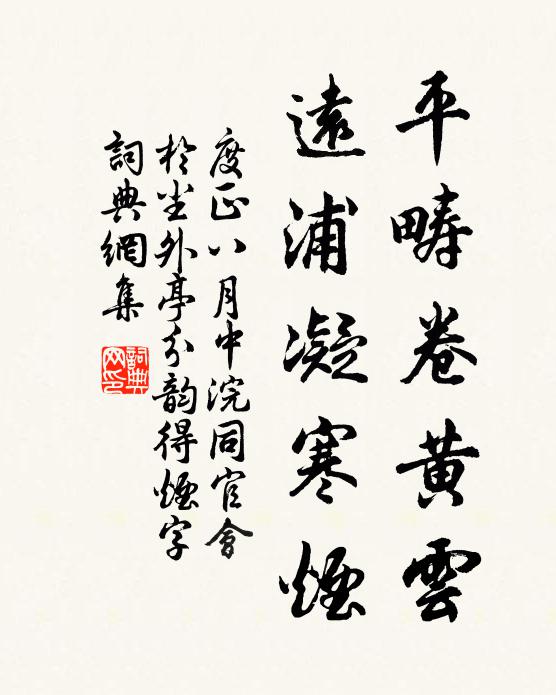 平疇卷黃雲
遠浦凝寒煙
度正八月中浣同官會
於坐外亭分韵得煙字
詞典網集
詞典網印